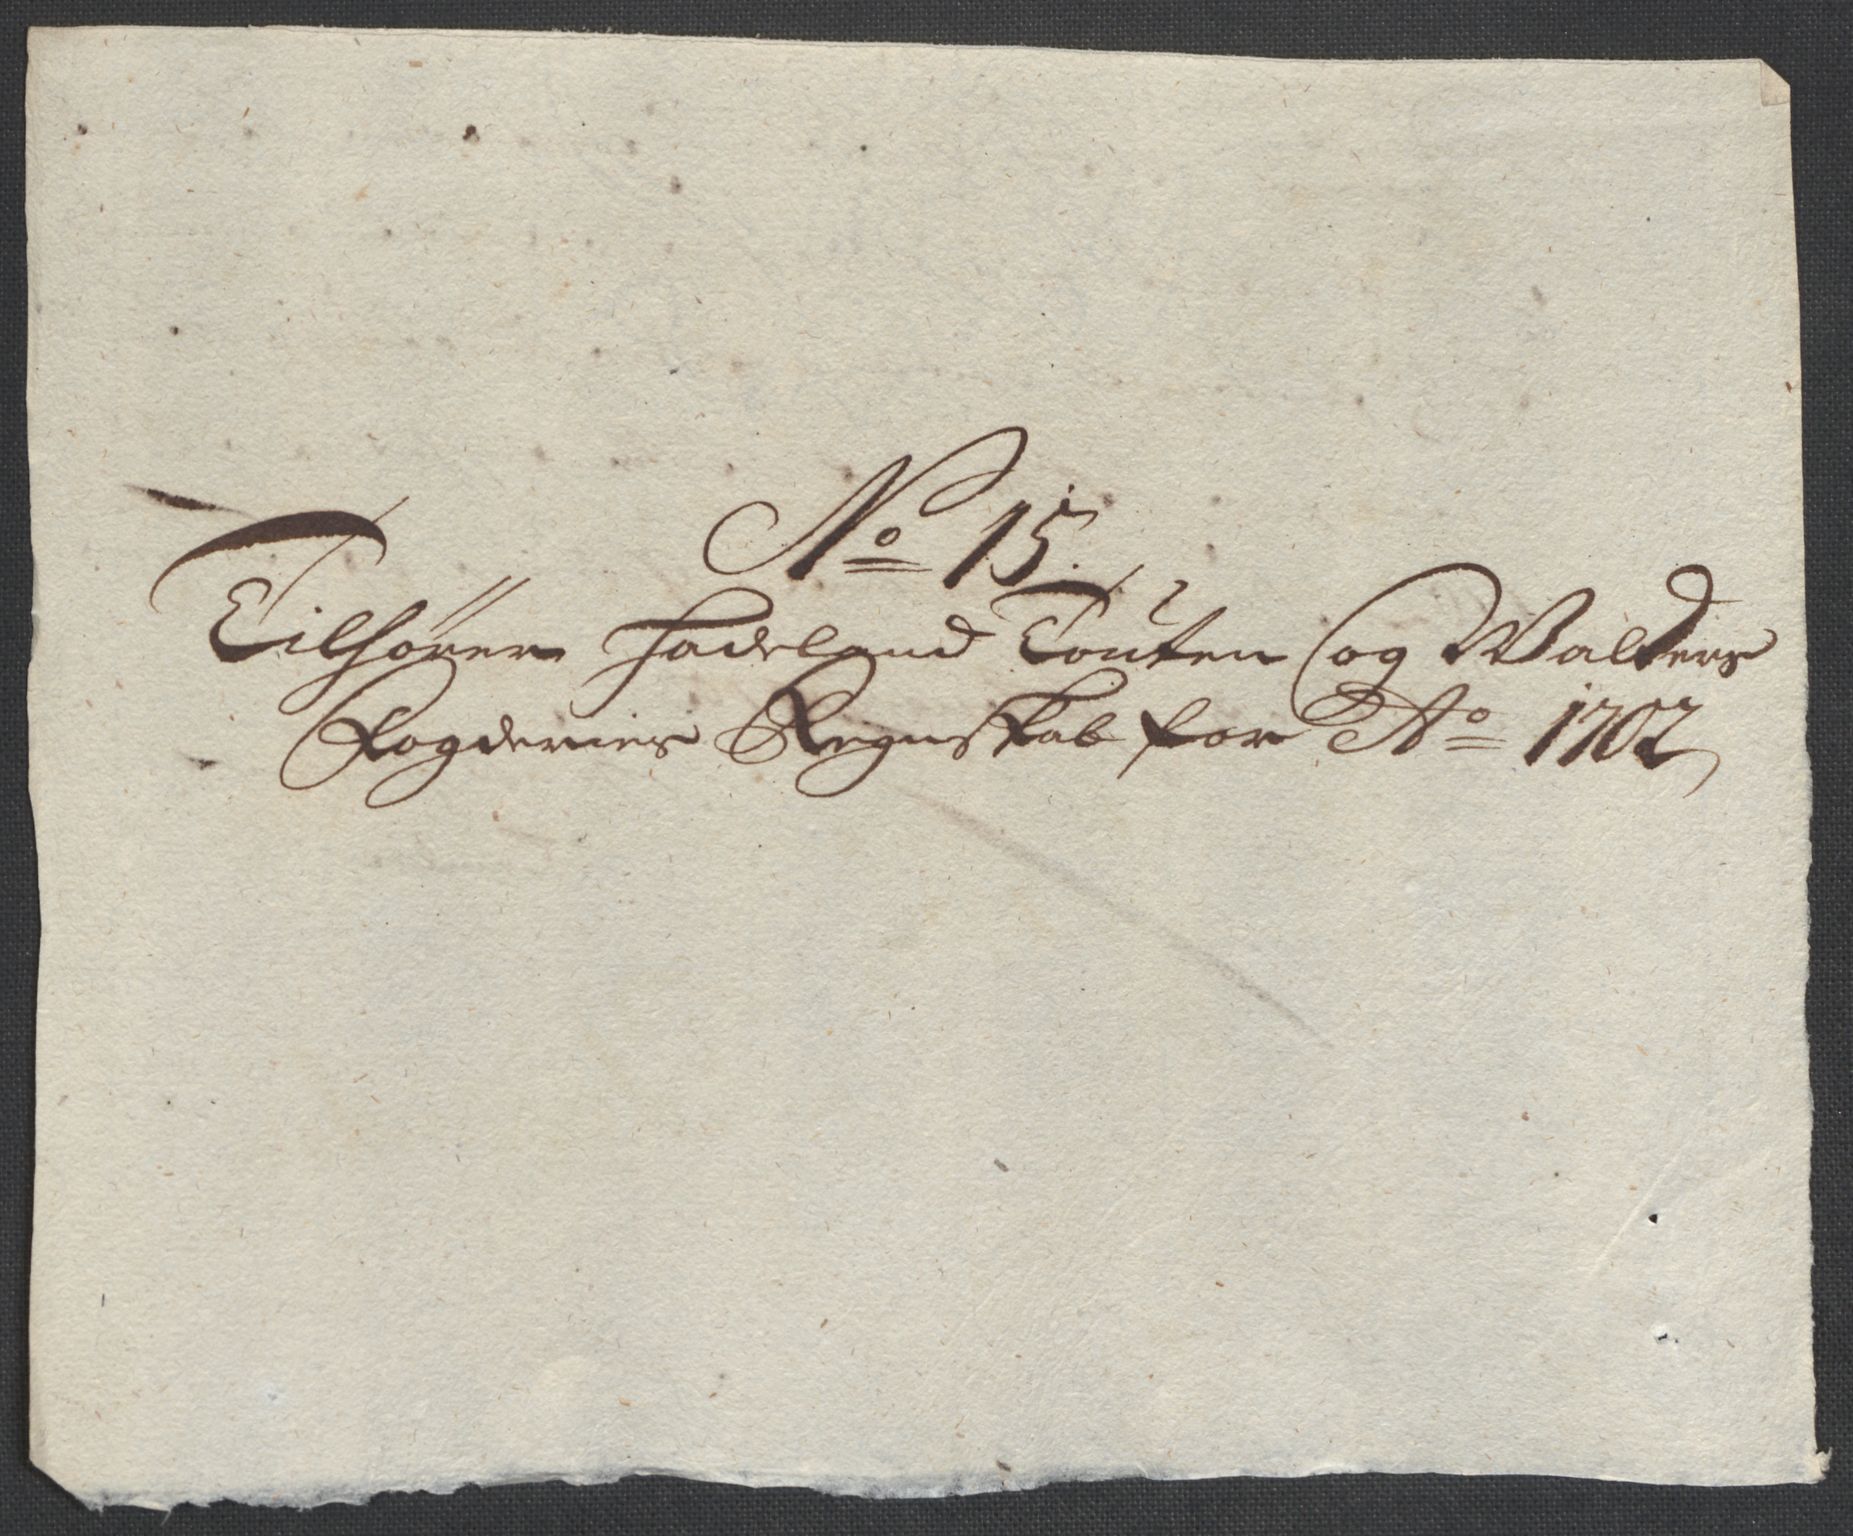 No 15.
Tilhører Hadeland Touten og Walders
Fogderies Regnskab for Ao 1702